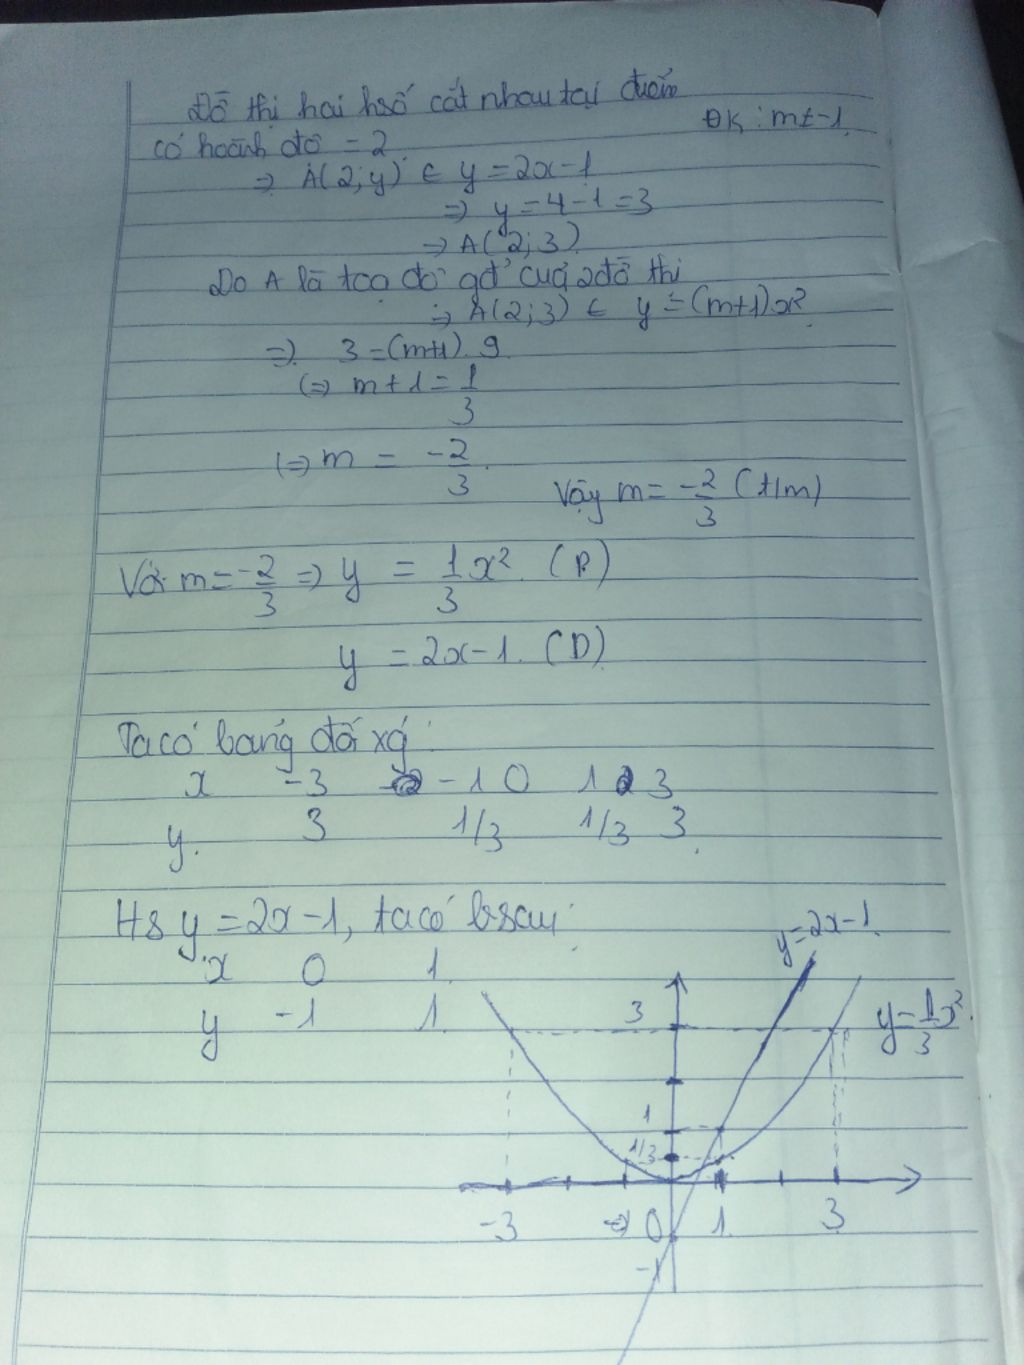 Đồ thị hai hsố cắt nhau tại điểm
có hoành độ = 2
ĐK : m ≠ -1
=> A(2;y) ∈ y = 2x-1
=> y = 4-1 = 3
=> A(2;3)
Do A là toạ độ gđ của 2 đồ thi
=> A(2;3) ∈ y = (m+1)x²
=> 3 = (m+1). 9
(=> m+1 = 1/3
(=> m = -2/3
Vậy m = -2/3 (t/m)
Với m = -2/3 => y = 1/3 x² (P)
y = 2x-1. (D)
Ta có bảng đối xg :
x -3 -1 0 1 3
y. 3 1/3 1/3 3
Hs y = 2x-1, ta có bsau:
x 0 1
y -1 1
y=2x-1
3
y = 1/3 x²
1
1/3
-3 0 1 3
-1